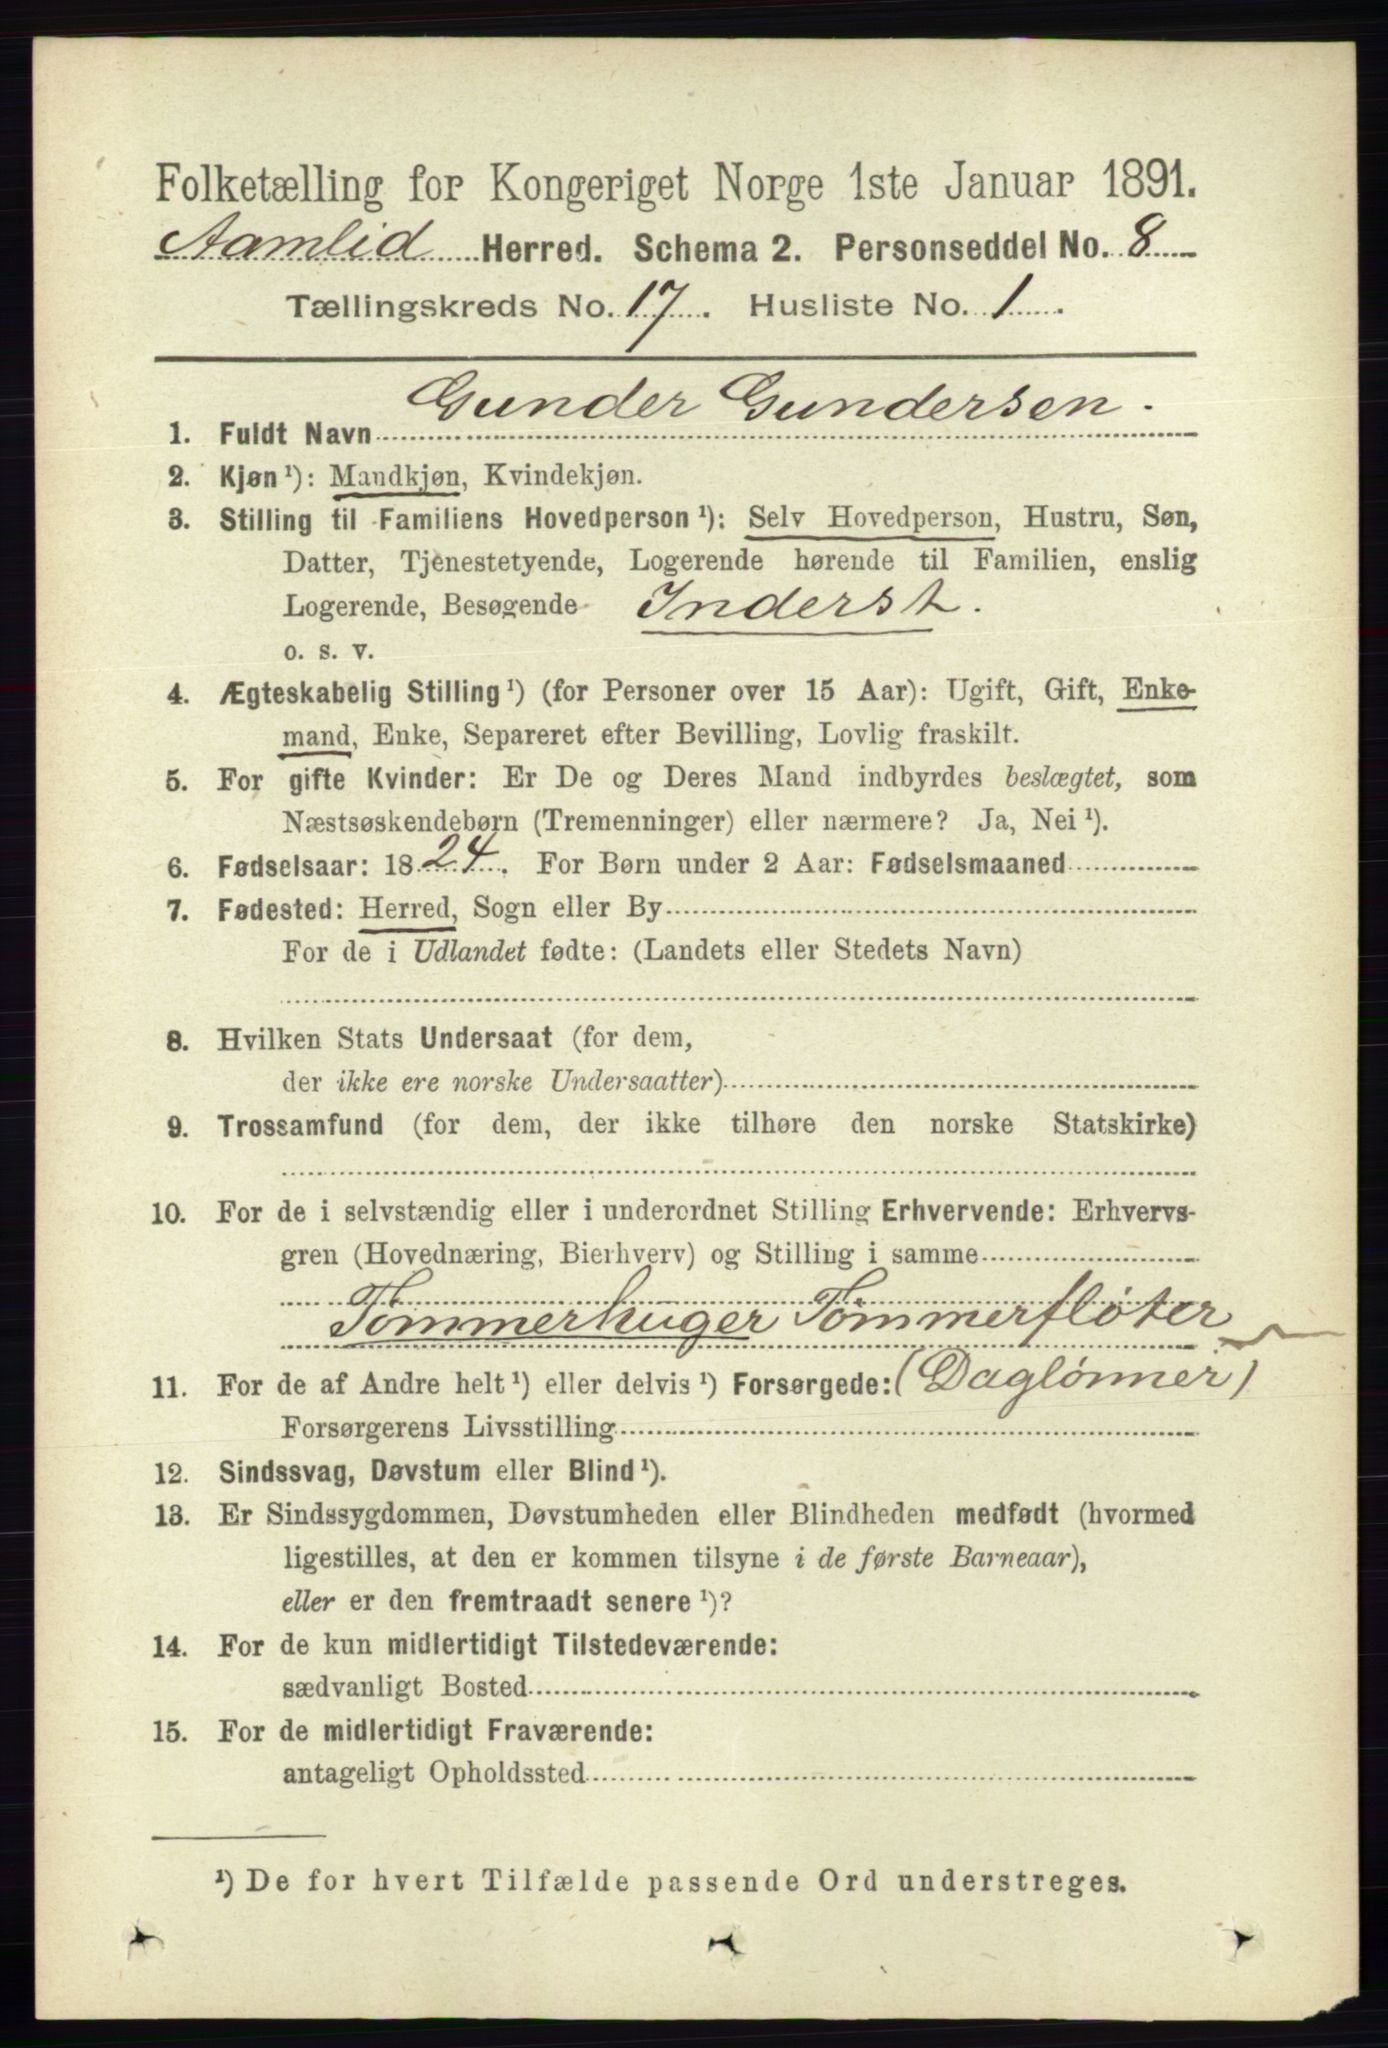 Folketælling for Kongeriget Norge 1ste Januar 1891.
Aamlid Herred. Schema 2. Personseddel No. 8
Tællingskreds No. 17. Husliste No. 1.
1. Fuldt Navn Gunder Gundersen.
2. Kjøn¹): Mandkjøn, Kvindekjøn.
3. Stilling til Familiens Hovedperson¹): Selv Hovedperson, Hustru, Søn,
Datter, Tjenestetyende, Logerende hørende til Familien, enslig
Logerende, Besøgende Inderst.
o. s. v.
4. Ægteskabelig Stilling¹) (for Personer over 15 Aar): Ugift, Gift, Enke-
mand, Enke, Separeret efter Bevilling, Lovlig fraskilt.
5. For gifte Kvinder: Er De og Deres Mand indbyrdes beslægtet, som
Næstsøskendebørn (Tremenninger) eller nærmere? Ja, Nei¹).
6. Fødselsaar: 1824. For Børn under 2 Aar: Fødselsmaaned
7. Fødested: Herred, Sogn eller By
For de i Udlandet fødte: (Landets eller Stedets Navn)
8. Hvilken Stats Undersaat (for dem,
der ikke ere norske Undersaatter)
9. Trossamfund (for dem, der ikke tilhøre den norske Statskirke)
10. For de i selvstændig eller i underordnet Stilling Erhvervende: Erhvervs-
gren (Hovednæring, Bierhverv) og Stilling i samme
Tømmerhuger Tømmerfløter
11. For de af Andre helt¹) eller delvis¹) Forsørgede: (Daglønner)
Forsørgerens Livsstilling
12. Sindssvag, Døvstum eller Blind¹).
13. Er Sindssygdommen, Døvstumheden eller Blindheden medfødt (hvormed
ligestilles, at den er kommen tilsyne i de første Barneaar),
eller er den fremtraadt senere¹)?
14. For de kun midlertidigt Tilstedeværende:
sædvanligt Bosted
15. For de midlertidigt Fraværende:
antageligt Opholdssted
¹) De for hvert Tilfælde passende Ord understreges.